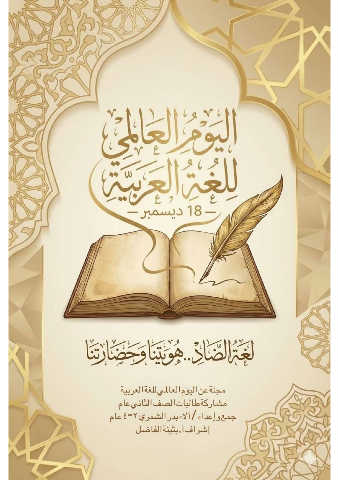 اليَومُ العَالَمِي
للُغَةُ العَرَبيَّة
18 ديسمبر
لغَةُ الضَّادْ..هُويَتِنَا وَحَضَارَتنَا
مجلة عن اليوم العالمي للغة العربية
مشاركة طالبات الصف الثاني عام
جمع وإعداد/ بدر الشمري ٣-٤ عام
إشراف أ.بثينة الفاضل